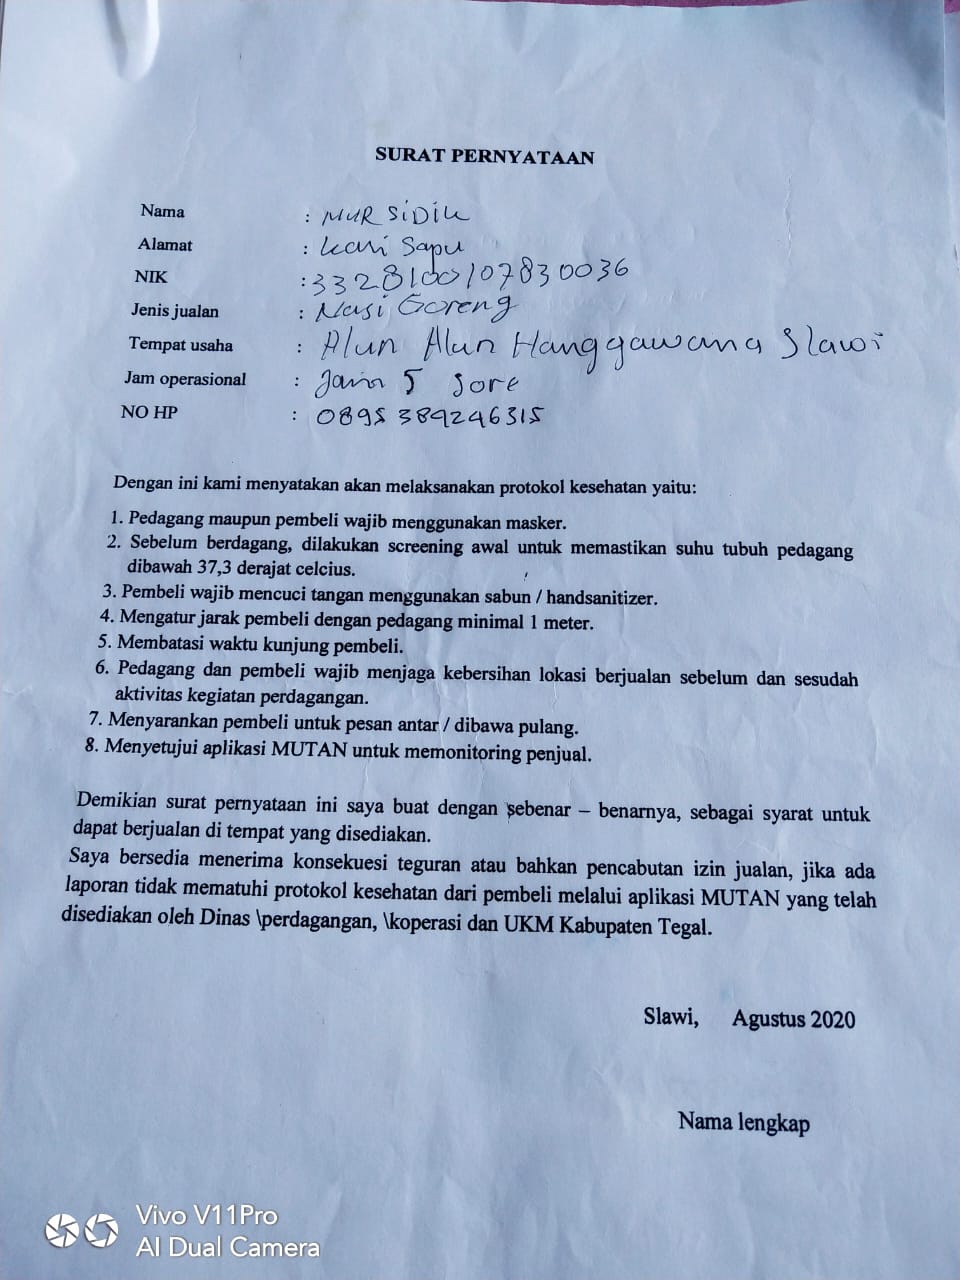 SURAT PERNYATAAN
Nama : NUR SiDiK
Alamat : Kali Sapu
NIK : 3328100107830036
Jenis jualan : Nasi Goreng
Tempat usaha : Alun Alun Hanggawana Slawi
Jam operasional : Jam 5 Sore
NO HP : 0895 389246315
Dengan ini kami menyatakan akan melaksanakan protokol kesehatan yaitu:
1. Pedagang maupun pembeli wajib menggunakan masker.
2. Sebelum berdagang, dilakukan screening awal untuk memastikan suhu tubuh pedagang
dibawah 37,3 derajat celcius.
3. Pembeli wajib mencuci tangan menggunakan sabun / handsanitizer.
4. Mengatur jarak pembeli dengan pedagang minimal 1 meter.
5. Membatasi waktu kunjung pembeli.
6. Pedagang dan pembeli wajib menjaga kebersihan lokasi berjualan sebelum dan sesudah
aktivitas kegiatan perdagangan.
7. Menyarankan pembeli untuk pesan antar / dibawa pulang.
8. Menyetujui aplikasi MUTAN untuk memonitoring penjual.
Demikian surat pernyataan ini saya buat dengan sebenar – benarnya, sebagai syarat untuk
dapat berjualan di tempat yang disediakan.
Saya bersedia menerima konsekuesi teguran atau bahkan pencabutan izin jualan, jika ada
laporan tidak mematuhi protokol kesehatan dari pembeli melalui aplikasi MUTAN yang telah
disediakan oleh Dinas \perdagangan, \koperasi dan UKM Kabupaten Tegal.
Slawi, Agustus 2020
Nama lengkap
Vivo V11Pro
AI Dual Camera